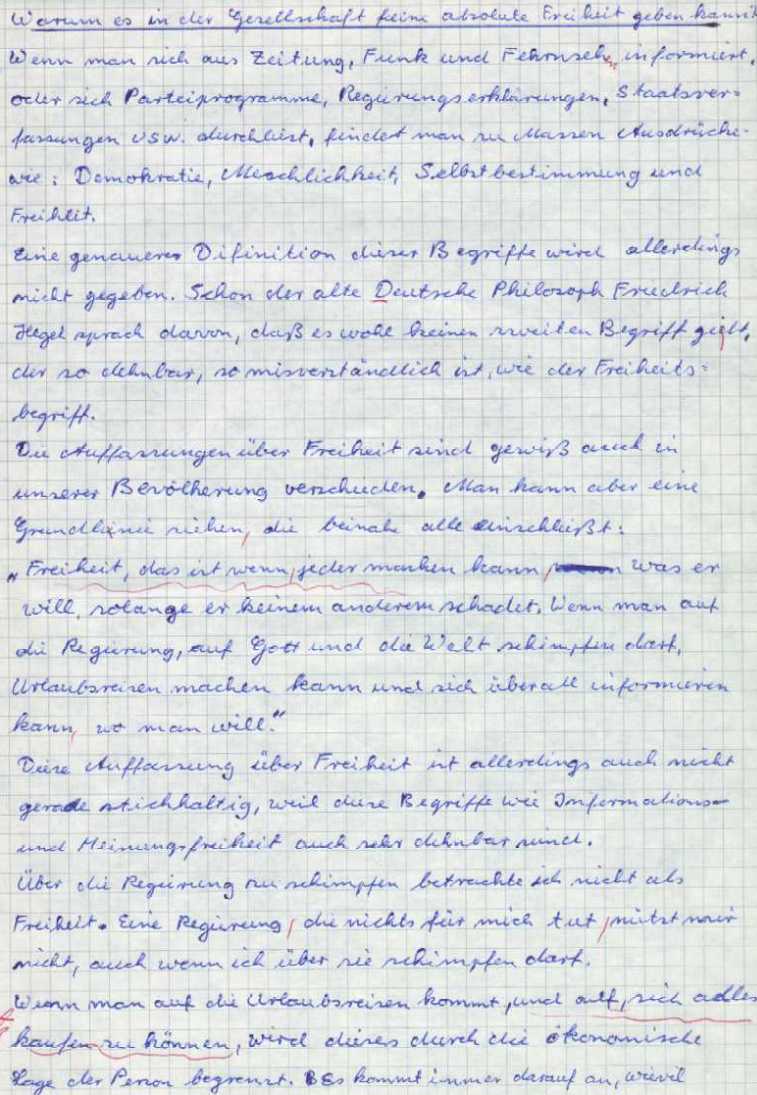 Warum es in der Gesellschaft keine absolute Freiheit geben kann?
Wenn man sich aus Zeitung, Funk und Fehrnseh, informiert,
oder sich Parteiprogramme, Regierungserklärungen, Staatsver=
fassungen usw. durchliest, findet man zu Massen Ausdrücke
wie: Demokratie, Menschlichkeit, Selbstbestimmung und
Freiheit.
Eine genauere Difinition dieser Begriffe wird allerdings
nicht gegeben. Schon der alte Deutsche Philosoph Friedrich
Hegel sprach davon, daß es wohl keinen zweiten Begriff giebt,
der so dehnbar, so misverständlich ist, wie der Freiheits=
begriff.
Die Auffassungen über Freiheit sind gewiß auch in
unserer Bevölkerung verschieden. Man kann aber eine
Grundlinie ziehen, die beinahe alle einschließt:
"Freiheit, das ist wenn, jeder machen kann, was er
will, solange er keinem anderem schadet. Wenn man auf
die Regierung, auf Gott und die Welt schimpfen darf,
Urlaubsreisen machen kann und sich überall informieren
kann, wo man will."
Diese Auffassung über Freiheit ist allerdings auch nicht
gerade stichhaltig, weil diese Begriffe wie Informations=
und Meinungsfreiheit auch sehr dehnbar sind.
Über die Regierung zu schimpfen betrachte ich nicht als
Freiheit. Eine Regierung, die nichts für mich tut, nützt mir
nicht, auch wenn ich über sie schimpfen darf.
Wenn man auf die Urlaubsreisen kommt, und auf, sich alles
kaufen zu können, wird dieses durch die ökonomische
Lage der Person begrenzt. Es kommt immer darauf an, wievil